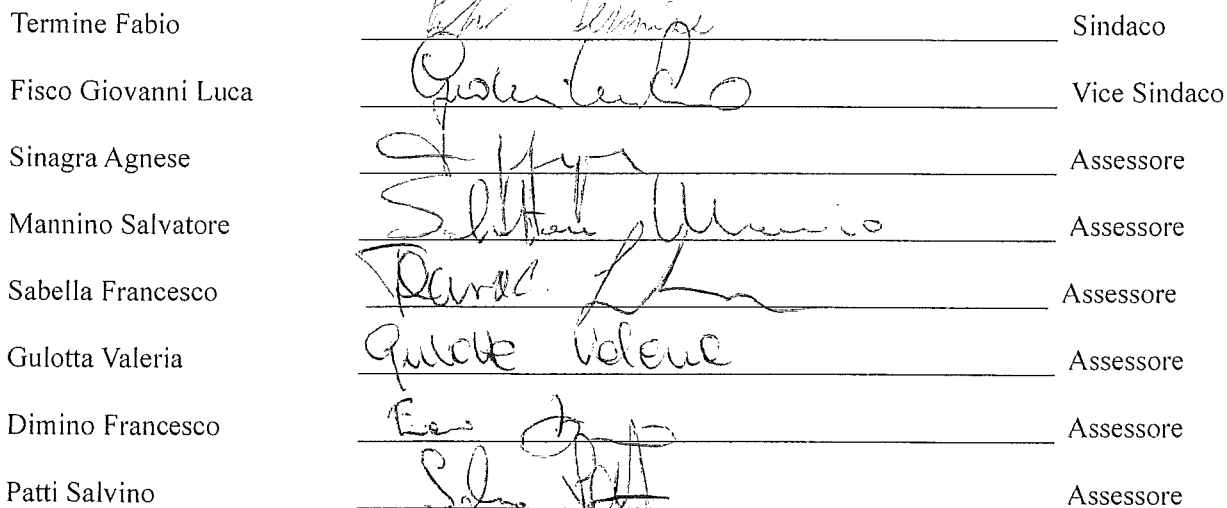 Termine Fabio Termine Sindaco
Fisco Giovanni Luca Vice Sindaco
Sinagra Agnese Assessore
Mannino Salvatore Salvatore Assessore
Sabella Francesco Assessore
Gulotta Valeria Gulotta Valeria Assessore
Dimino Francesco Assessore
Patti Salvino Assessore